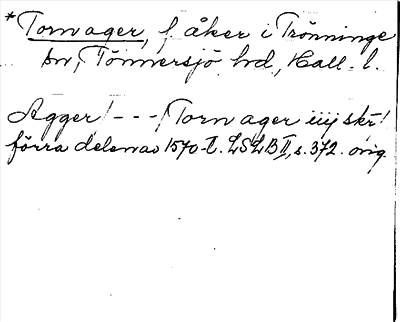 *Tornager, f. åker i Trönninge
sn, Tönnersjö hd, Hall. l.
Agger! - - - / Torn ager iiij skr!
förra delen av 1570-t. LSLB II, s. 372. orig.